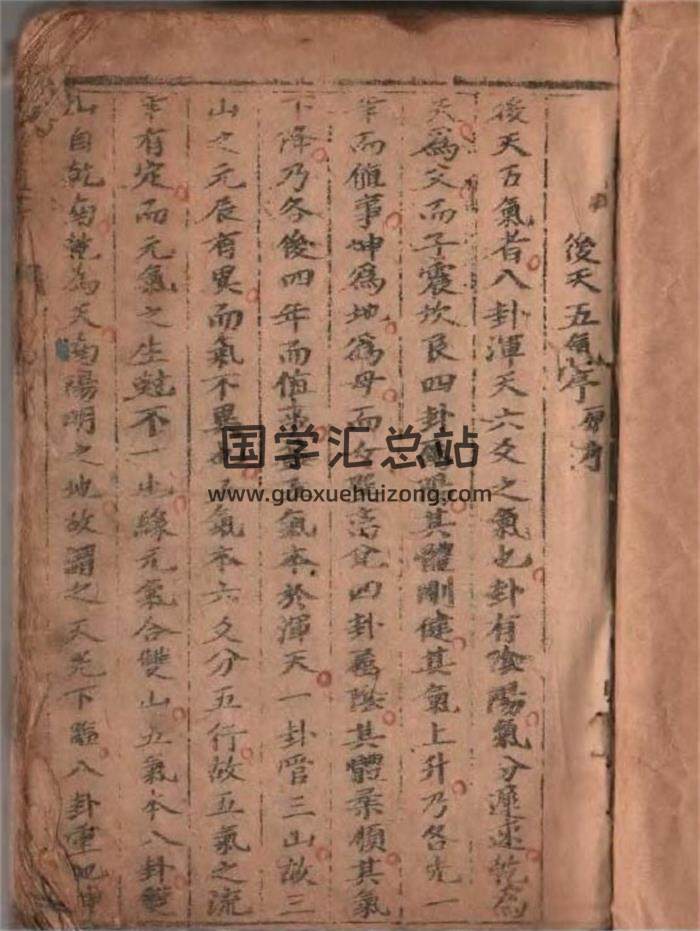 後天五氣序
後天五氣者八卦渾天六爻之氣也卦有陰陽氣分遲速乾為
天為父而子震坎艮四卦其體剛健其氣上升乃各先一
年而值事坤為地為母而女巽离兌四卦屬陰其體柔順其氣
下降乃各後四年而值事氣本於渾天一卦管三山故三
山之元辰有異而氣不異氣本六爻分五行故五氣之流
年有定而元氣之生尅不一也緣元氣合雙山五氣本八卦雙
山自乾為天陽明之地故謂之天光下臨八卦坤
国学汇总站
www.guoxuehuizong.com